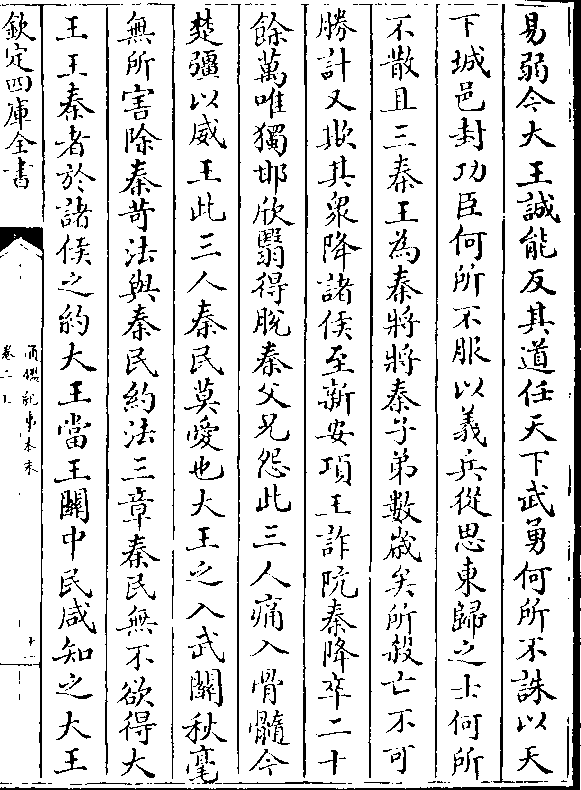 易弱今大王誠能反其道任天下武勇何所不誅以天
下城邑封功臣何所不服以義兵從思東歸之士何所
不散且三秦王為秦將將秦子弟數歲矣所殺亡不可
勝計又欺其衆降諸侯至新安項王詐阬秦降卒二十
餘萬唯獨邯欣翳得脫秦父兄怨此三人痛入骨髓今
楚彊以威王此三人秦民莫愛也大王之入武關秋毫
無所害除秦苛法與秦民約法三章秦民無不欲得大
王王秦者於諸侯之約大王當王關中民咸知之大王
欽定四庫全書
通鑑紀事本末
卷二上
十二